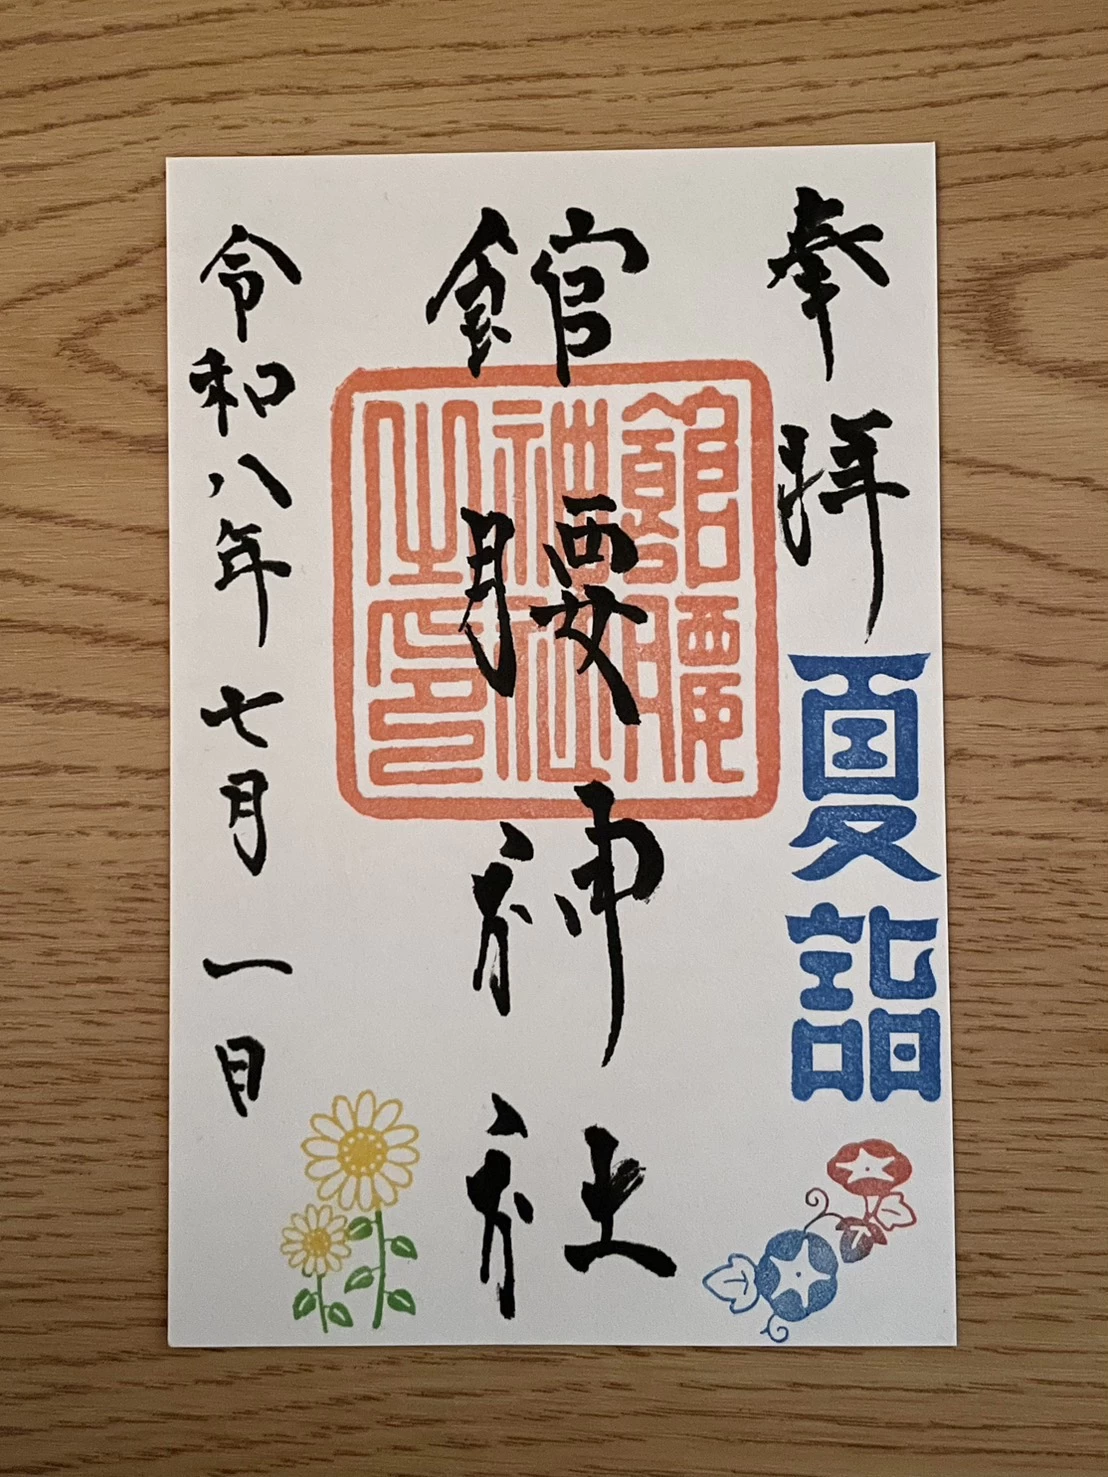 奉拝
夏詣
館腰神社
館腰
神社
之印
令和八年七月一日